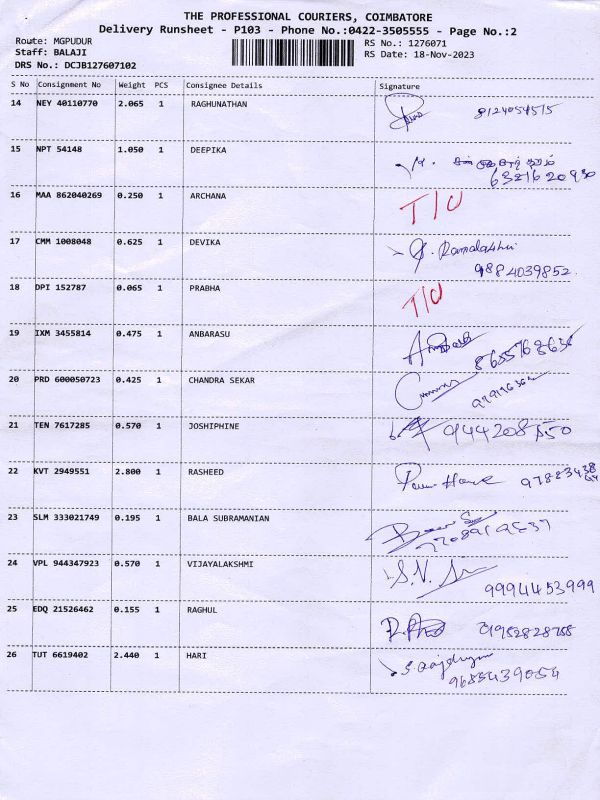 THE PROFESSIONAL COURIERS, COIMBATORE
Delivery Runsheet - P103 - Phone No.:0422-3505555 - Page No.:2
Route: MGPUDUR RS No.: 1276071
Staff: BALAJI RS Date: 18-Nov-2023
DRS No.: DCJB127607102
S No Consignment No Weight PCS Consignee Details Signature
14 NEY 40110770 2.065 1 RAGHUNATHAN 8124054515
15 NPT 54148 1.050 1 DEEPIKA
6321620930
16 MAA 862040269 0.250 1 ARCHANA T/U
17 CMM 1008048 0.625 1 DEVIKA
9884039852
18 DPI 152787 0.065 1 PRABHA T/U
19 IXM 3455814 0.475 1 ANBARASU
20 PRD 600050723 0.425 1 CHANDRA SEKAR
21 TEN 7617285 0.570 1 JOSHIPHINE
22 KVT 2949551 2.800 1 RASHEED
23 SLM 333021749 0.195 1 BALA SUBRAMANIAN
24 VPL 944347923 0.570 1 VIJAYALAKSHMI
9994453999
25 EDQ 21526462 0.155 1 RAGHUL
26 TUT 6619402 2.440 1 HARI
9655439054